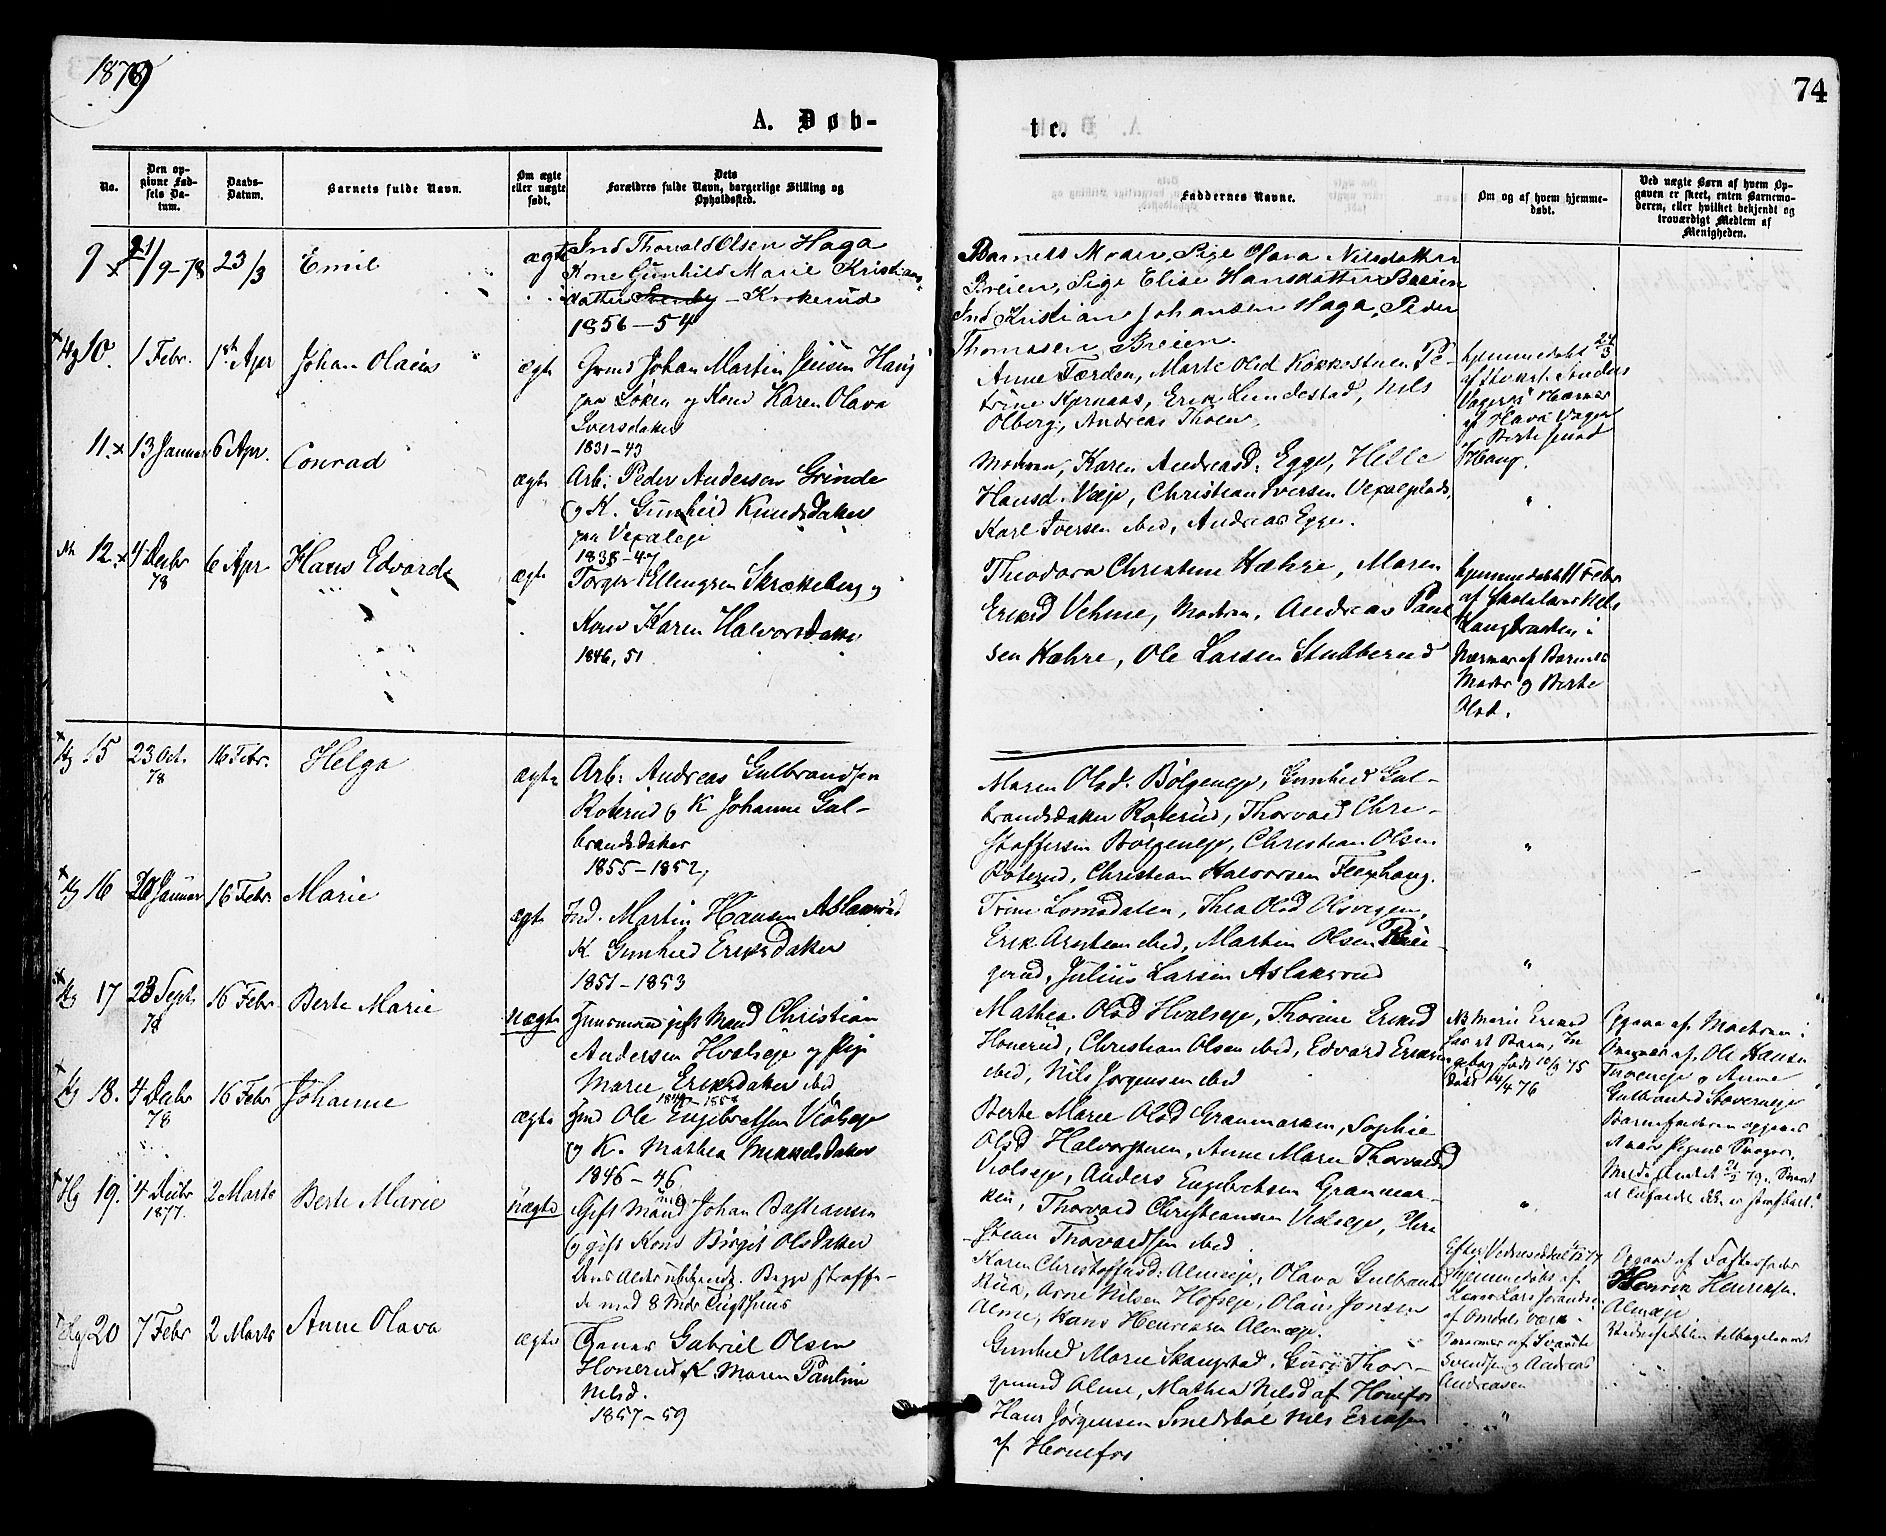 1879
74
A. Døb-
te.
No.
Den op-
givne Fød-
sels Da-
tum.
Daabs-
Datum.
Barnets fulde Navn.
Om ægte
eller uægte
født.
Dets
Forældres fulde Navn, borgerlige Stilling og
Opholdssted.
Faddernes Navne.
Om og af hvem hjemme-
døbt.
Ved uægte Børn af hvem Op-
gaven er skeet, enten Barnemo-
deren, eller hvilket bekjendt og
troværdigt Medlem af
Menigheden.
9 21/9-78 23/3 Emil ægte Ind Thorvald Olsen Haga
Kone Gunhild Marie Kristians
datter Krokerud
1856-54
Barnets Moder, Pige Olava Nilsdatter
Breien, Pige Elise Hansdatter Breien
Ind Kristian Johansen Haga, Peder
Thomasen Breien.
Hg 10. 1 Febr. 1st Apr Johan Olaus ægte Grmd Johan Martin Jensen Haug
paa Løken og Kone Karen Olava
Iversdatter
1831-43
Anne Færden, Marte Olsd Kokkestuen Pe-
trine Kjernaas, Erik Lundestad, Nils
Olberg, Andreas Thoen.
hjemmedøbt 24/3
Haug.
11. 13 Januar 6 Apr. Conrad ægte Arb: Peder Andersen Grinde
og K. Gunhild Knudsdatter
paa Vexaleje
1835-47
Moderen, Karen Andreasd: Egge, Helle
Hansd. Veje, Christian Iversen Vexalplads,
Karl Iversen ibid, Andreas Egge.
"
12. 4 Decbr 78 6 Apr Hans Edvard ægte Torger Ellingsen Skrækeberg og
Kone Karen Halvorsdatter
1846, 51
Theodora Christine Hæhre, Maren
Eriksd Vehme, Moderen, Andreas Paul
sen Hæhre, Ole Larsen Stubberud
hjemmedøbt 11 Febr
af Skolelærer Nils
Langbraaten i
Nærvær af Barnets
Moder og Berte
Olsd.
Hg 15 23 Oct. 78 16 Febr. Helga ægte Arb: Andreas Gulbrandsen
Roterud og K Johanne Gul-
brandsdatter
1855-1852,
Maren Olsd. Bølgeneje, Gunhild Gul-
brandsdatter Roterud, Thorvald Chri-
stoffersen Bølgeneje, Christian Olsen
Roterud, Christian Halvorsen Flexhaug.
"
Hg 16 20 Januar 16 Febr Marie ægte Ind. Martin Hansen Aslaksrud
K Gunhild Eriksdatter
1851-1853
Trine Lomsdalen, Thea Olsd Olsvegen,
Erik Arntsen ibid, Martin Olsen
gerud, Julius Larsen Aslaksrud
"
Hg 17 23 Sept. 78 16 Febr Berte Marie uægte Huusmand gift Mand Christian
Andersen Hvalseje og Pige
Marie Eriksdatter ibid
Mathea Olsd Hvalseje, Thorine Eriksd
Honerud, Christian Olsen ibid, Edvard Eriksen
ibid, Nils Jørgensen ibid
NB Marie Eriksd
har et Barn, In
geborg født 10/9 75
døbt 14/4 76
Opgave af Moderen i
Nærvær af Ole Hansen
Thoeneje og Anne
Gulbrandsd Stoverneje
Hg 18. 4 Decbr 78 16 Febr Johanne ægte Hmd Ole Engebretsen Violseje
og K. Mathea Mikkelsdatter
1846-46
Berte Marie Olsd Granmarken, Sophie
Olsd Halvorstuen, Anne Maren Thorvaldsd
Violseje, Anders Engebretsen Granmar-
ken, Thorvald Christiansen Violseje, Chri
stian Thorvaldsen ibid.
"
Hg 19. 4 Decbr 1877. 2 Marts Berte Marie uægte Gift Mand Johan Bastiansen
og gift Kone Birgit Olsdatter
Deres Alder ubekjendt. Begge straffe-
de med 8 Mdr Tugthuus
Karen Christoffersd: Almeje, Olava Gulbrands
Rua, Arne Nilsen Hofseje, Olaus Jonsen
Alme, Hans Henriksen Almeje.
hjemmedøbt af
Svendsen og Andreas
Andreasen
Opgave af Fosterfader
Henrik Henriksen
Almeje
Hg 20 7 Febr 2 Marts Anne Olava ægte Tjener Gabriel Olsen
Honerud, K Maren Pauline
Nilsd.
1857-59
Gunhild Marie Skaugstad, Guri Thor-
gunsd Alme, Mathea Nilsd af Hønefos
Hans Jørgensen Smedsbøl Nils Eriksen
af Hønefos
"